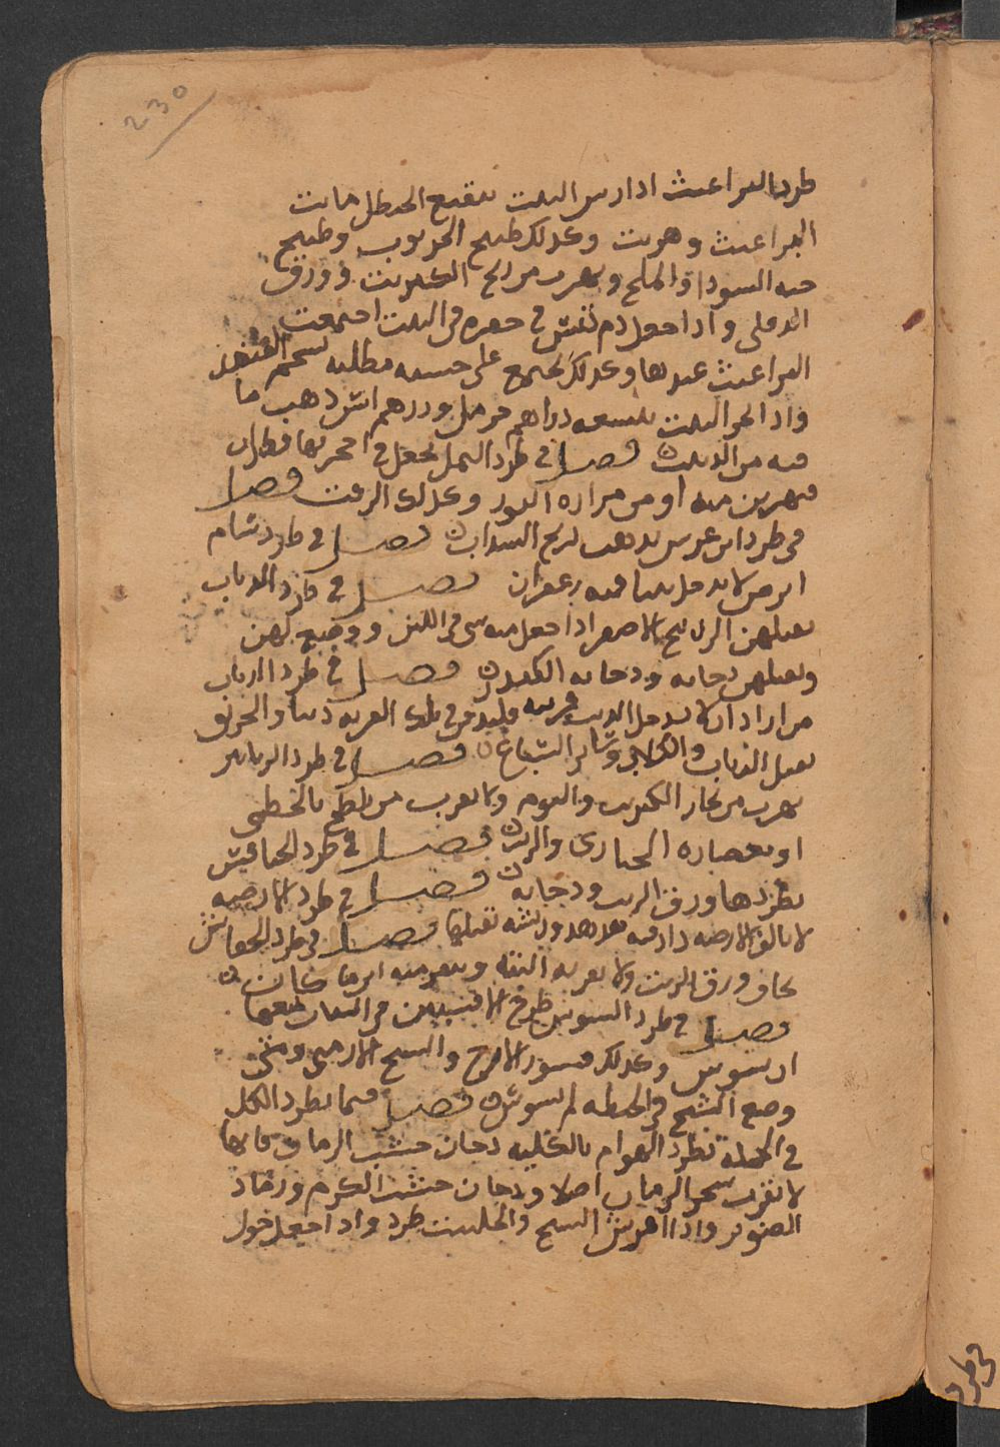 230
طرد البراغيث اذا رش البيت بنقيع الحنظل ماتت
البراغيث وهربت وكذلك طبيخ الخرنوب وطبيخ
حبه السودا والملح ويهرب من ريح الكبريت وورق
الدفلى واذا جعل دم تيس في حفره في البيت اجتمعت
البراغيث عندها وكذلك تجتمع على خشبه مطليه بشحم القنفد
واذا بخر البيت بتسعه دراهم حرمل ودرهم اشق ذهب ما
فيه من الدبيب فصل في طرد النمل يجعل في احجرتها قطران
فيهربن منه او من مراره الثور وكذلك الزفت فصل
في طرد ابن عرس يذهب لريح السداب فصل في طرد سام
ابرص لا يدخل بيتا فيه زعفران فصل في طرد الدباب
يقتلهن الزرنيخ الاصفر اذا جعل منه شي في اللبن ووضع لهن
ويقتلهن دخانه ودخان الكندر فصل في طرد الذياب
من اراد ان لا يدخل الذيب قريه فليدفن في تلك القريه ذنبا والخربق
يقتل الذياب والكلاب وساير السباع فصل في طرد الزنابير
يهرب من بخار الكبريت والثوم ولا يقرب من تلطخ بالخطمي
او بعصاره الخبازى والزيت فصل في طرد الخنافس
يطردها ورق الدلب ودخانه فصل في طرد الارضه
لا تالف الارضه دار فيه هدهد وريشه تقتلها فصل في طرد الخفافش
يخاف ورق الدلب ولا يقربه البته وينفر منه اينما كان
فصل في طرد السوس طرح الافسنتين في الثياب يمنعها
ان تسوس وكذلك قشور الاترج والشيح الارمني ومتى
وضع الشيح في الحنطه لم تسوس فصل فيما يطرد الكل
في الجملة تطرد الهوام بالكليه دخان خشب الرمان فانها
لا تقرب شجر الرمان اصلا ودخان خشب الكرم ورماد
الصنوبر واذا افرش الشيح والحلتيت طرد واذا جعل حول